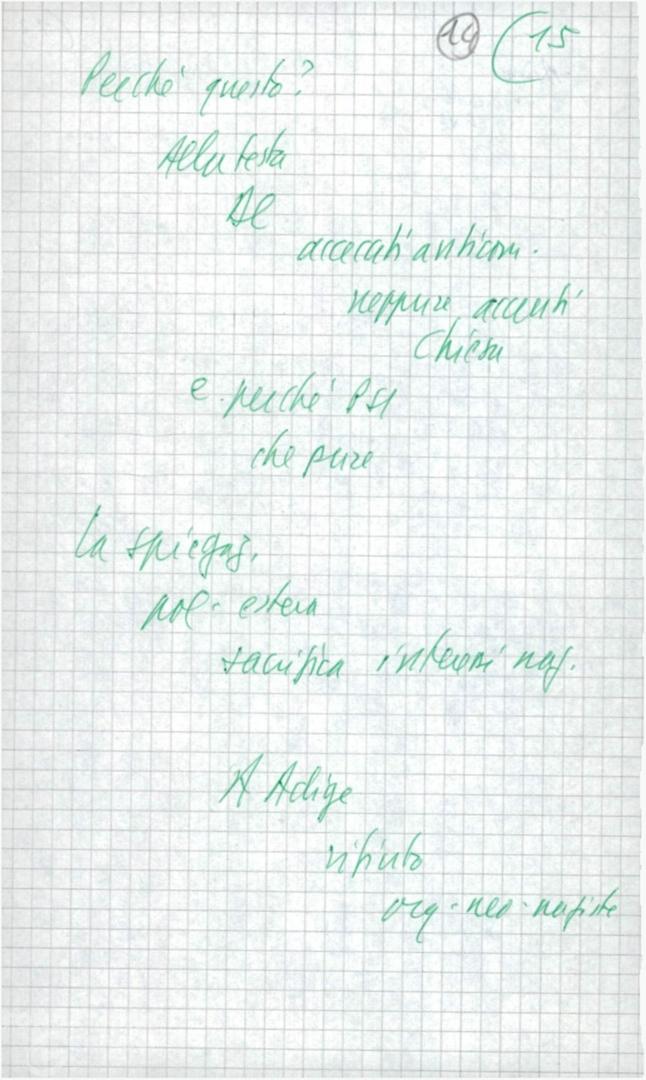 14 (15
Perché questo?
Alla testa
DC
accecati anticom.
neppure accenti
Chiesa
e perché PSI
che pure
la spiegaz.
pol. estera
sacrifica interessi naz.
A Adige
rifiuto
org. neo-naziste